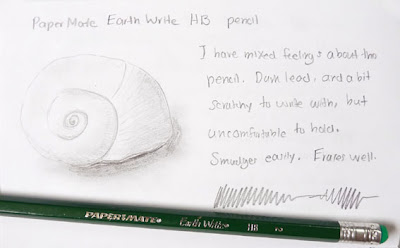 PaperMate Earth Write HB pencil
I have mixed feelings about this
pencil. Dark lead, and a bit
scratchy to write with, but
uncomfortable to hold.
Smudges easily. Erases well.
PAPER MATE® Earth Write® HB 2